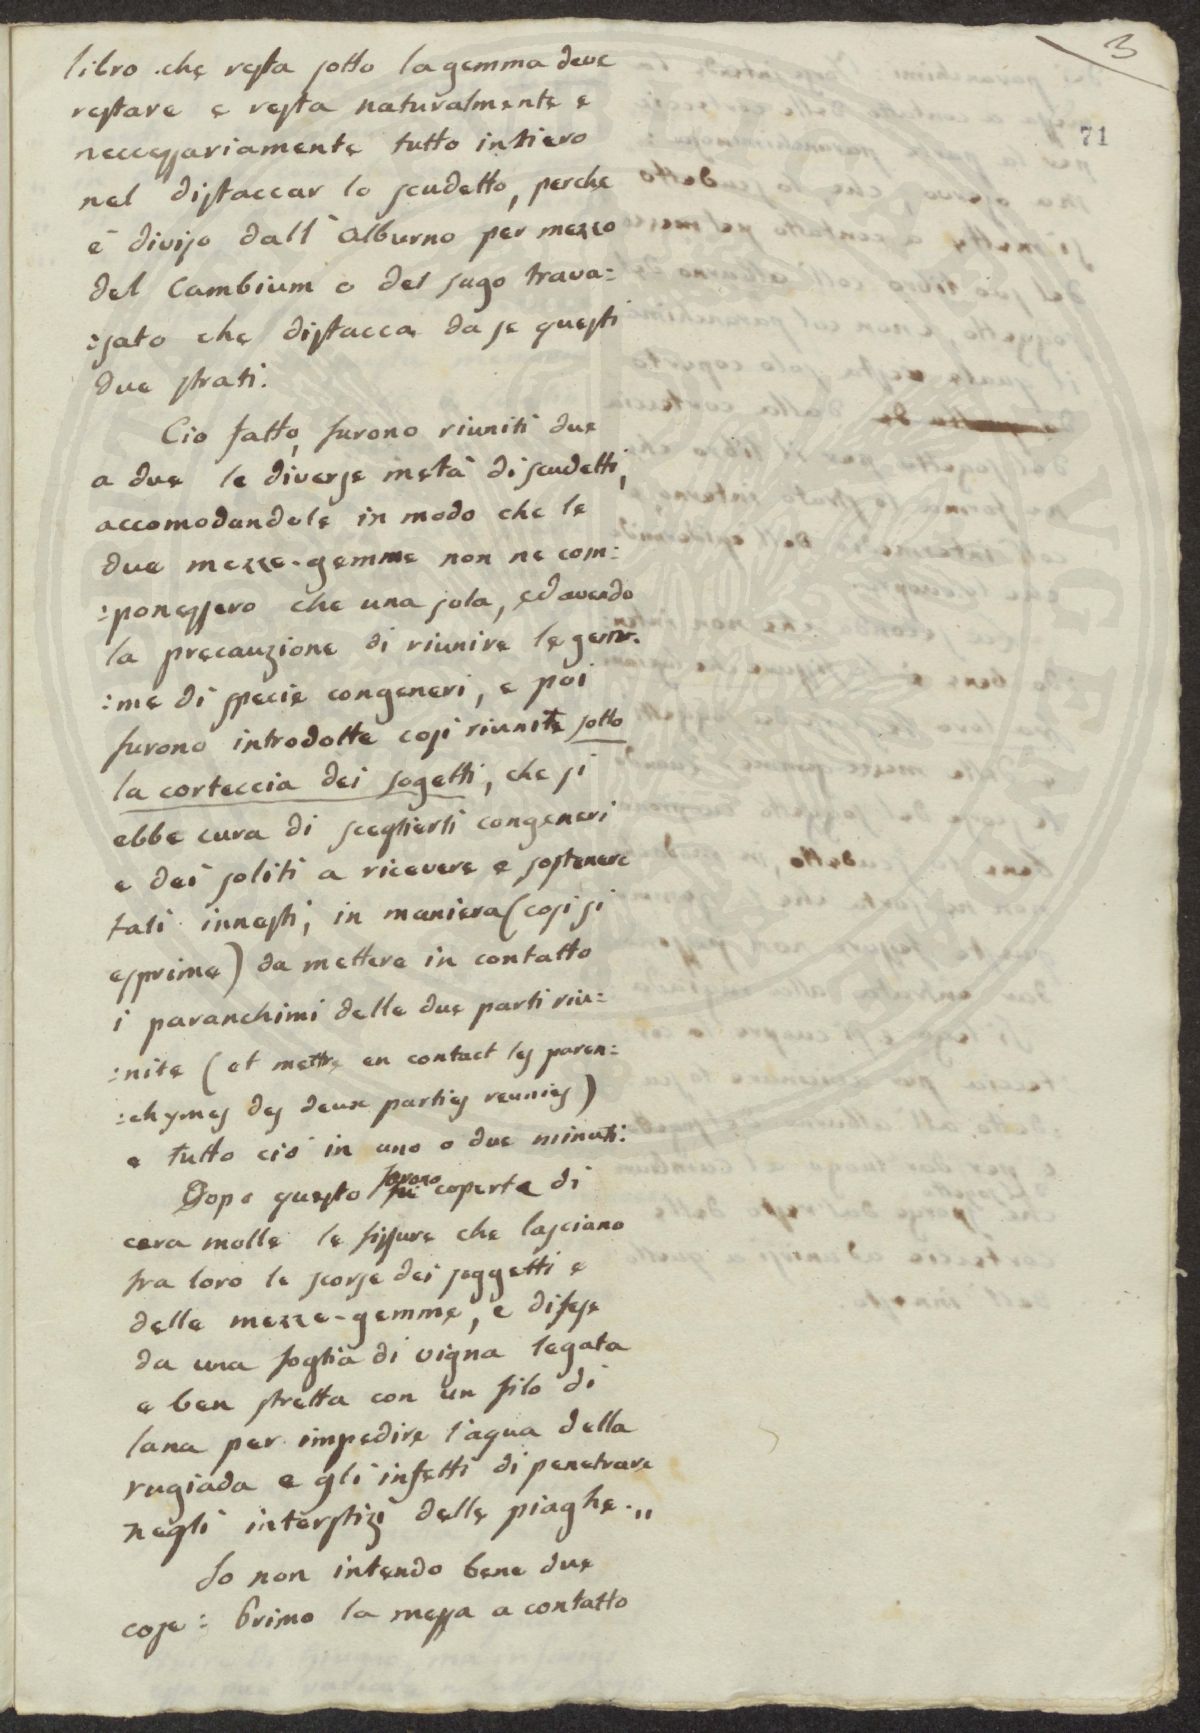 3
71
libro che resta sotto la gemma deve
restare e resta naturalmente e
neccessariamente tutto intiero
nel distaccar lo scudetto, perche
è diviso dall'Alburno per mezzo
del Cambium o del sugo trava=
=sato che distacca da se questi
due strati.
Cio fatto, furono riuniti due
a due le diverse metà di scudetti,
accomodandole in modo che le
due mezze-gemme non ne com=
=ponessero che una sola, ed avendo
la precauzione di riunire le gem=
=me di specie congeneri, e poi
furono introdotte cosi riunite sotto
la corteccia dei sogetti, che si
ebbe cura di sceglierli congeneri
e dei soliti a ricevere e sostenere
tali innesti, in maniera (cosi si
esprime) da mettere in contatto
i paranchimi delle due parti riu=
=nite (et mettre en contact les paren=
=chymes des deux parties reunies)
e tutto ciò in uno o due minuti.
Dopo questo furono coperte di
cera molle le fissure che lasciano
fra loro le scorse dei soggetti e
delle mezze-gemme, e difese
da una foglia di vigna legata
e ben stretta con un filo di
lana per impedire l'aqua della
rugiada e gli insetti di penetrare
negli interstizi delle piaghe.„
Io non intendo bene due
cose: Primo la messa a contatto